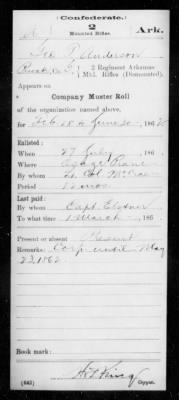 Confederate.
A 2 Ark.
Mounted Rifles.
Geo T. Anderson
2 Regiment Arkansas
Mtd. Rifles (Dismounted).
Appears on
Company Muster Roll
of the organization named above,
for Feb 28 to June 30, 1862
Enlisted:
When 27 July, 186
Where Osage
By whom Lt. Col.
Period 12 mos.
Last paid:
By whom Capt.
To what time 1 March, 186
Present or absent Present
Remarks: Corp until May
23, 1862
Book mark:
(642) Copyist.